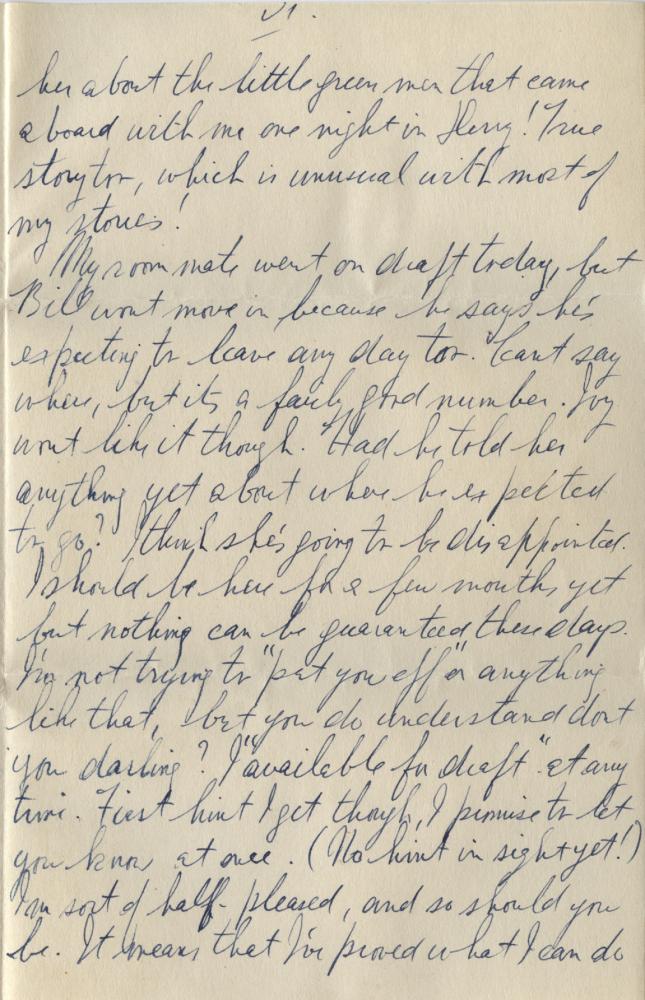 VI.
her about the little green men that came
aboard with me one night in Derry! True
story too, which is unusual with most of
my stories!
My room mate went on draft today, but
Bill wont move in, because he says he's
expecting to leave any day too. Cant say
where, but its a fairly good number. Joy
wont like it though. Had he told her
anything yet about where he expected
to go? I think she's going to be disappointed.
I should be here for a few months yet
but nothing can be guaranteed these days.
I'm not trying to "put you off" or anything
like that, but you do understand dont
you darling? I "available for draft" at any
time. First hint I get though, I promise to let
you know at once. (No hint in sight yet!)
I'm sort of half-pleased, and so should you
be. It means that I've proved what I can do